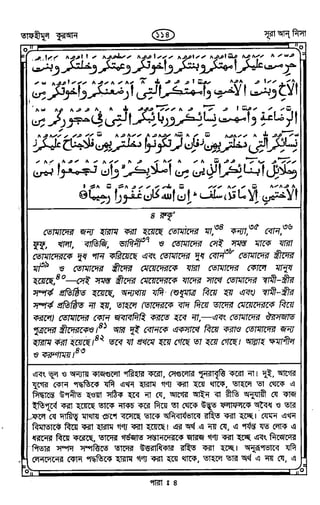 তাফহীমুল কুরআন
১১৪
সূরা আন নিসা
حُرِّمَتْ عَلَيْكُمْ أُمَّهٰتُكُمْ وَبَنٰتُكُمْ وَأَخَوٰتُكُمْ وَعَمّٰتُكُمْ وَخٰلٰتُكُمْ وَبَنٰتُ
الْأَخِ وَبَنٰتُ الْأُخْتِ وَأُمَّهٰتُكُمُ الّٰتِيْٓ أَرْضَعْنَكُمْ وَأَخَوٰتُكُمْ مِّنَ
الرَّضَاعَةِ وَأُمَّهٰتُ نِسَآئِكُمْ وَرَبَآئِبُكُمُ الّٰتِيْ فِيْ حُجُوْرِكُمْ مِّنْ
نِّسَآئِكُمُ الّٰتِيْ دَخَلْتُمْ بِهِنَّ فَإِنْ لَّمْ تَكُوْنُوْا دَخَلْتُمْ بِهِنَّ فَلَا جُنَاحَ عَلَيْكُمْ
وَحَلَآئِلُ أَبْنَآئِكُمُ الَّذِيْنَ مِنْ أَصْلَابِكُمْ وَأَنْ تَجْمَعُوْا بَيْنَ
الْأُخْتَيْنِ إِلَّا مَا قَدْ سَلَفَ إِنَّ اللّٰهَ كَانَ غَفُوْرًا رَّحِيْمًا
৪ রুকূ'
তোমাদের জন্য হারাম করা হয়েছে তোমাদের মা,৩৪ কন্যা,৩৫ বোন,৩৬
ফুফু, খালা, ভাতিজি, ভাগিনী৩৭ ও তোমাদের সেই সমস্ত মাকে যারা
তোমাদেরকে দুধ পান করিয়েছে এবং তোমাদের দুধ বোন৩৮ তোমাদের স্ত্রীদের
মা৩৯ ও তোমাদের স্ত্রীদের মেয়েদেরকে যারা তোমাদের কোলে মানুষ
হয়েছে,৪০—সেই সমস্ত স্ত্রীদের মেয়েদেরকে যাদের সাথে তোমাদের স্বামী-স্ত্রীর
সম্পর্ক প্রতিষ্ঠিত হয়েছে, অন্যথায় যদি (শুধুমাত্র বিয়ে হয় এবং) স্বামী-স্ত্রীর
সম্পর্ক প্রতিষ্ঠিত না হয়, তাহলে (তাদেরকে বাদ দিয়ে তাদের মেয়েদেরকে বিয়ে
করলে) তোমাদের কোন জবাবদিহি করতে হবে না,—এবং তোমাদের ঔরসজাত
পুত্রদের স্ত্রীদেরকেও।৪১ আর দুই বোনকে একসাথে বিয়ে করাও তোমাদের জন্য
হারাম করা হয়েছে।৪২ তবে যা প্রথমে হয়ে গেছে তা হয়ে গেছে। আল্লাহ ক্ষমাশীল
ও করুণাময়।৪৩
এবং ভুল ও অন্যায় কাজগুলো পরিহার করো, সেগুলোর পুনরাবৃত্তি করো না। দুই, আগের
যুগের কোন পদ্ধতিকে যদি এখন হারাম গণ্য করা হয়ে থাকে, তাহলে তা থেকে এ
সিদ্ধান্তে উপনীত হওয়া সঠিক হবে না যে, আগের আইন বা রীতি অনুযায়ী যে কাজ
ইতিপূর্বে করা হয়েছে তাকে নাকচ করে দিয়ে তা থেকে উদ্ভূত ফলাফলকে অবৈধ ও তার
ফলে যে দায়িত্ব মাথায় চেপে বসেছে তাকে অনিবার্যভাবে রহিত করা হচ্ছে। যেমন এখন
বিমাতাকে বিয়ে করা হারাম গণ্য করা হয়েছে। এর অর্থ এ নয় যে, এ পর্যন্ত যত লোক এ
ধরনের বিয়ে করেছে, তাদের গর্ভজাত সন্তানদেরকে জারজ গণ্য করা হচ্ছে এবং নিজেদের
পিতার সম্পদ সম্পত্তিতে তাদের উত্তরাধিকার রহিত করা হচ্ছে। অনুরূপভাবে যদি
লেনদেনের কোন পদ্ধতিকে হারাম গণ্য করা হয়ে থাকে, তাহলে তার অর্থ এ নয় যে, এ
পারা : ৪